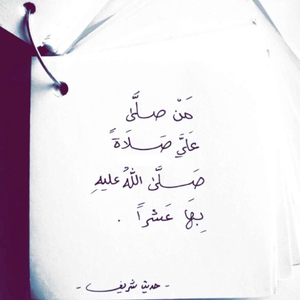 مَنْ صلَّى
عَلَيَّ صَلَاةً
صَلَّى اللهُ عليهِ
بِهَا عَشراً .
- حديث شريف -